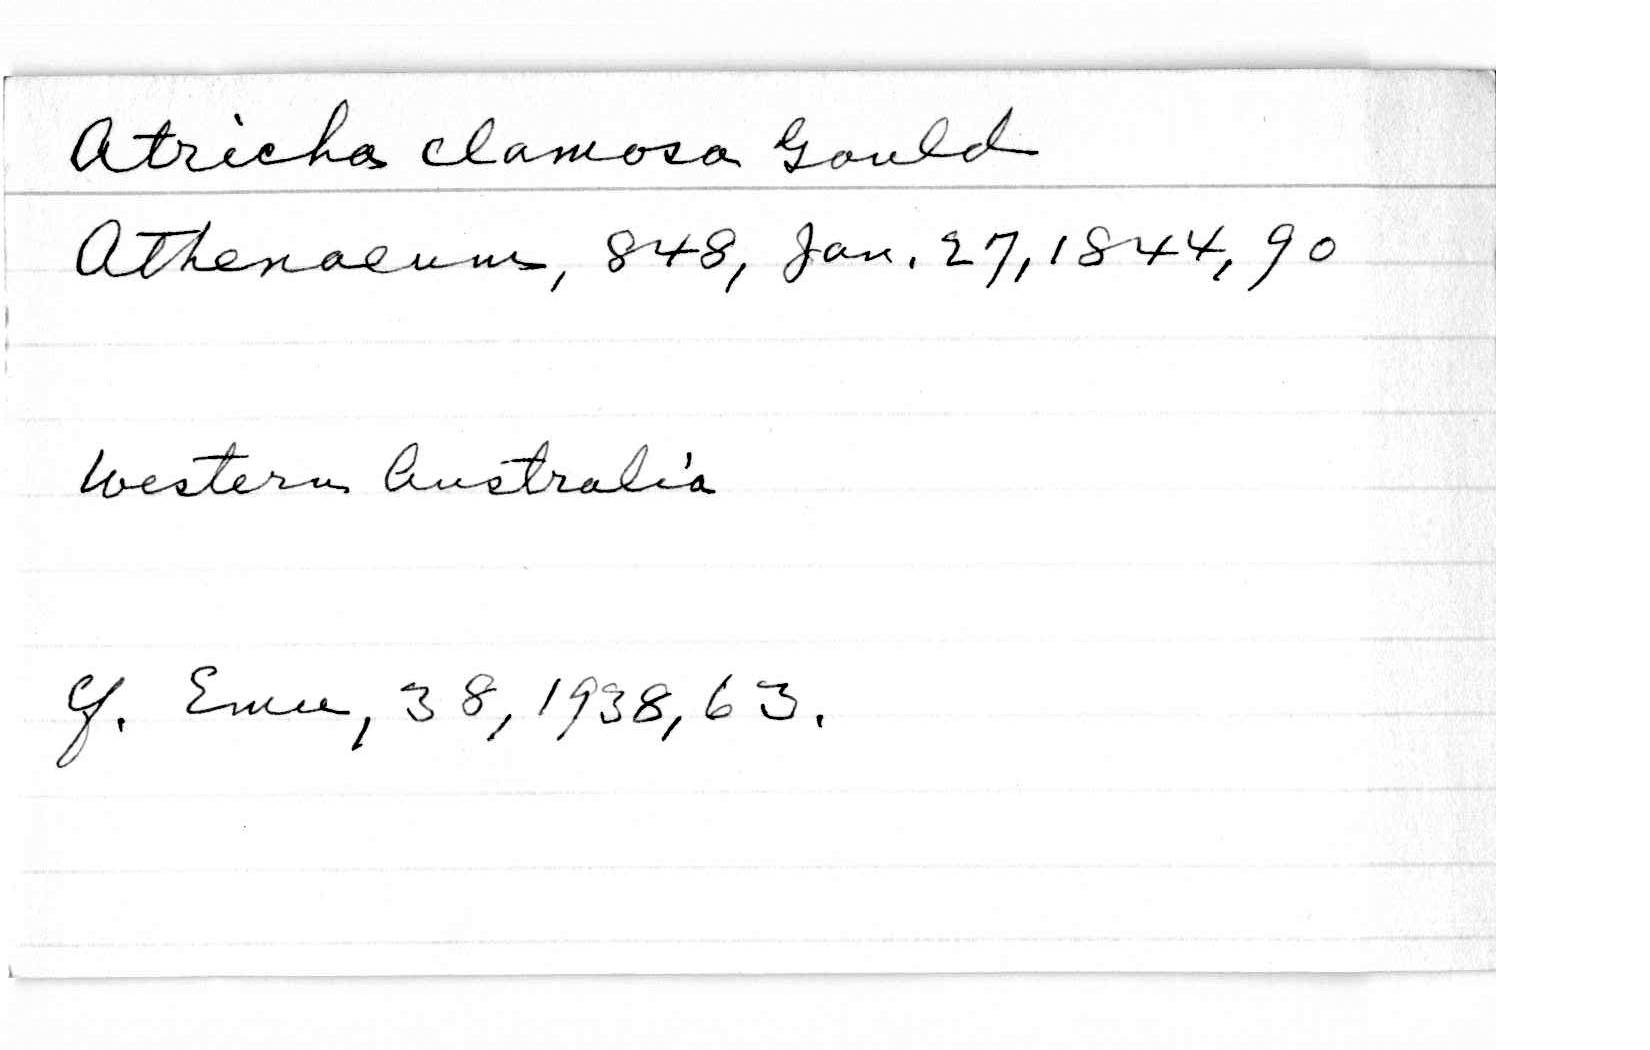 Atricha clamosa Gould
Athenaeum, 848, Jan. 27, 1844, 90
Western Australia
Cf. Emu, 38, 1938, 63.